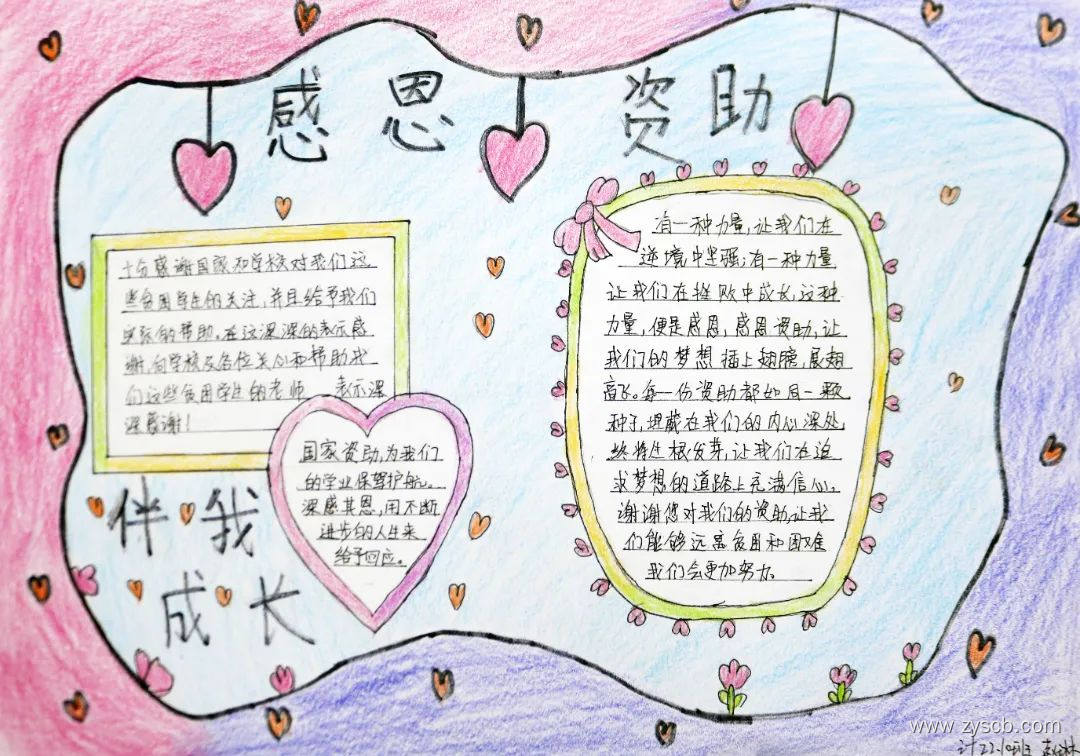 感恩 资助
十分感谢国家和学校对我们这
些贫困学生的关注,并且给予我们
实际的帮助。在这深深的表示感
谢,向学校及各位关心和帮助我
们这些贫困学生的老师 表示深
深感谢!
国家资助,为我们
的学业保驾护航。
深感其恩,用不断
进步的人生来
给予回应。
伴我
成长
有一种力量,让我们在
逆境中坚强;有一种力量
让我们在挫败中成长,这种
力量,便是感恩,感恩资助,让
我们的梦想插上翅膀,展翅
高飞。每一份资助都如同一颗
种子,埋藏在我们的内心深处,
终将生根发芽,让我们在追
求梦想的道路上充满信心。
谢谢您对我们的资助,让我
们能够远离贫困和困难
我们会更加努力。
www.zyscb.com